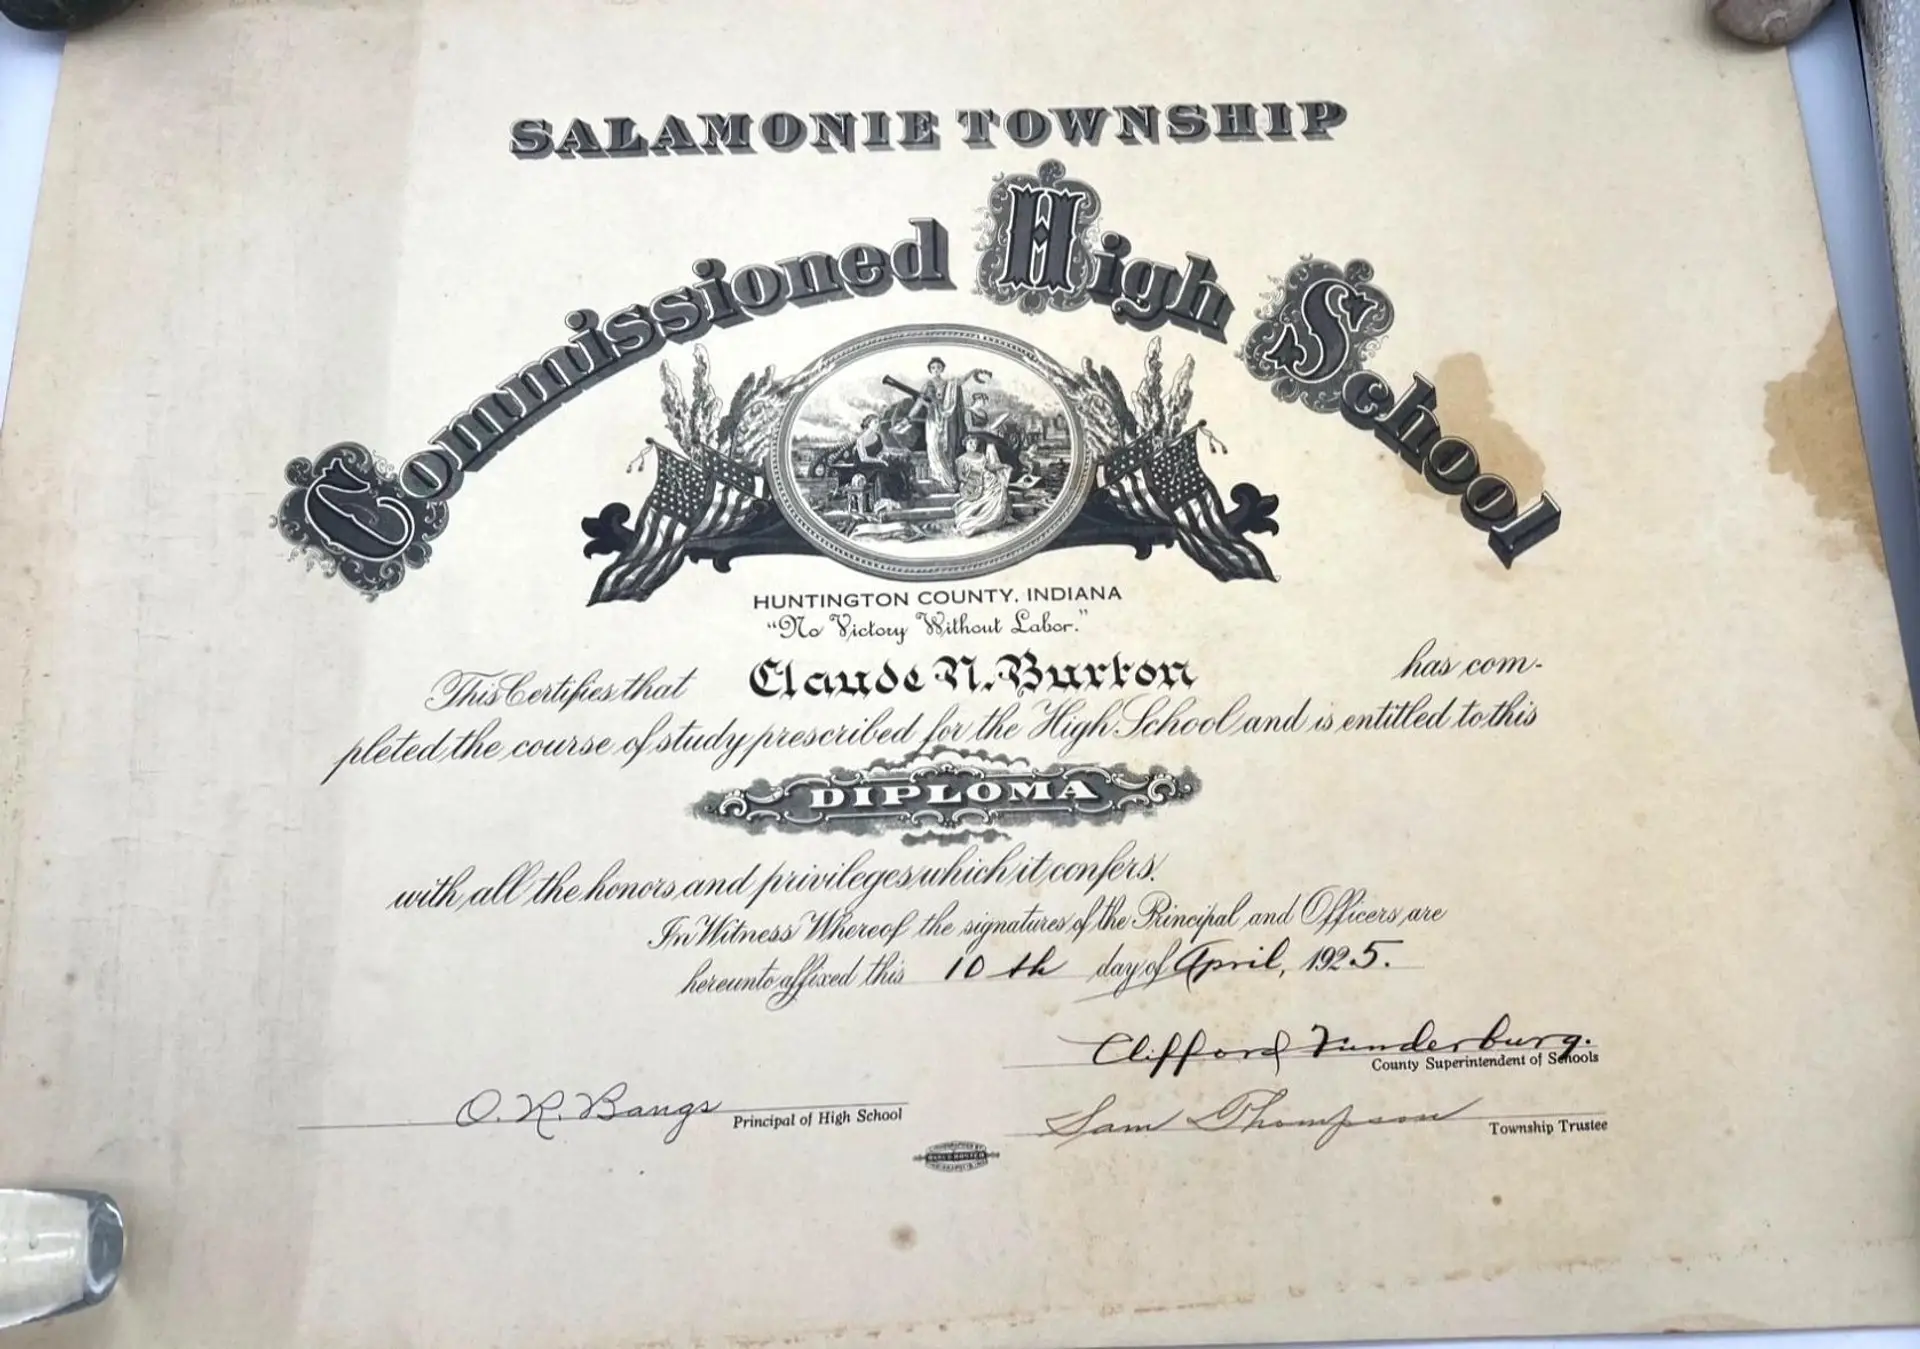 SALAMONIE TOWNSHIP
Commissioned High School
HUNTINGTON COUNTY, INDIANA
"No Victory Without Labor."
This Certifies that Claude N. Burton has com-
pleted the course of study prescribed for the High School and is entitled to this
DIPLOMA
with all the honors and privileges which it confers.
In Witness Whereof the signatures of the Principal and Officers are
hereunto affixed this 10th day of April, 1925.
Clifford Funderburg.
County Superintendent of Schools
O. R. Bangs Principal of High School
Sam Thompson Township Trustee